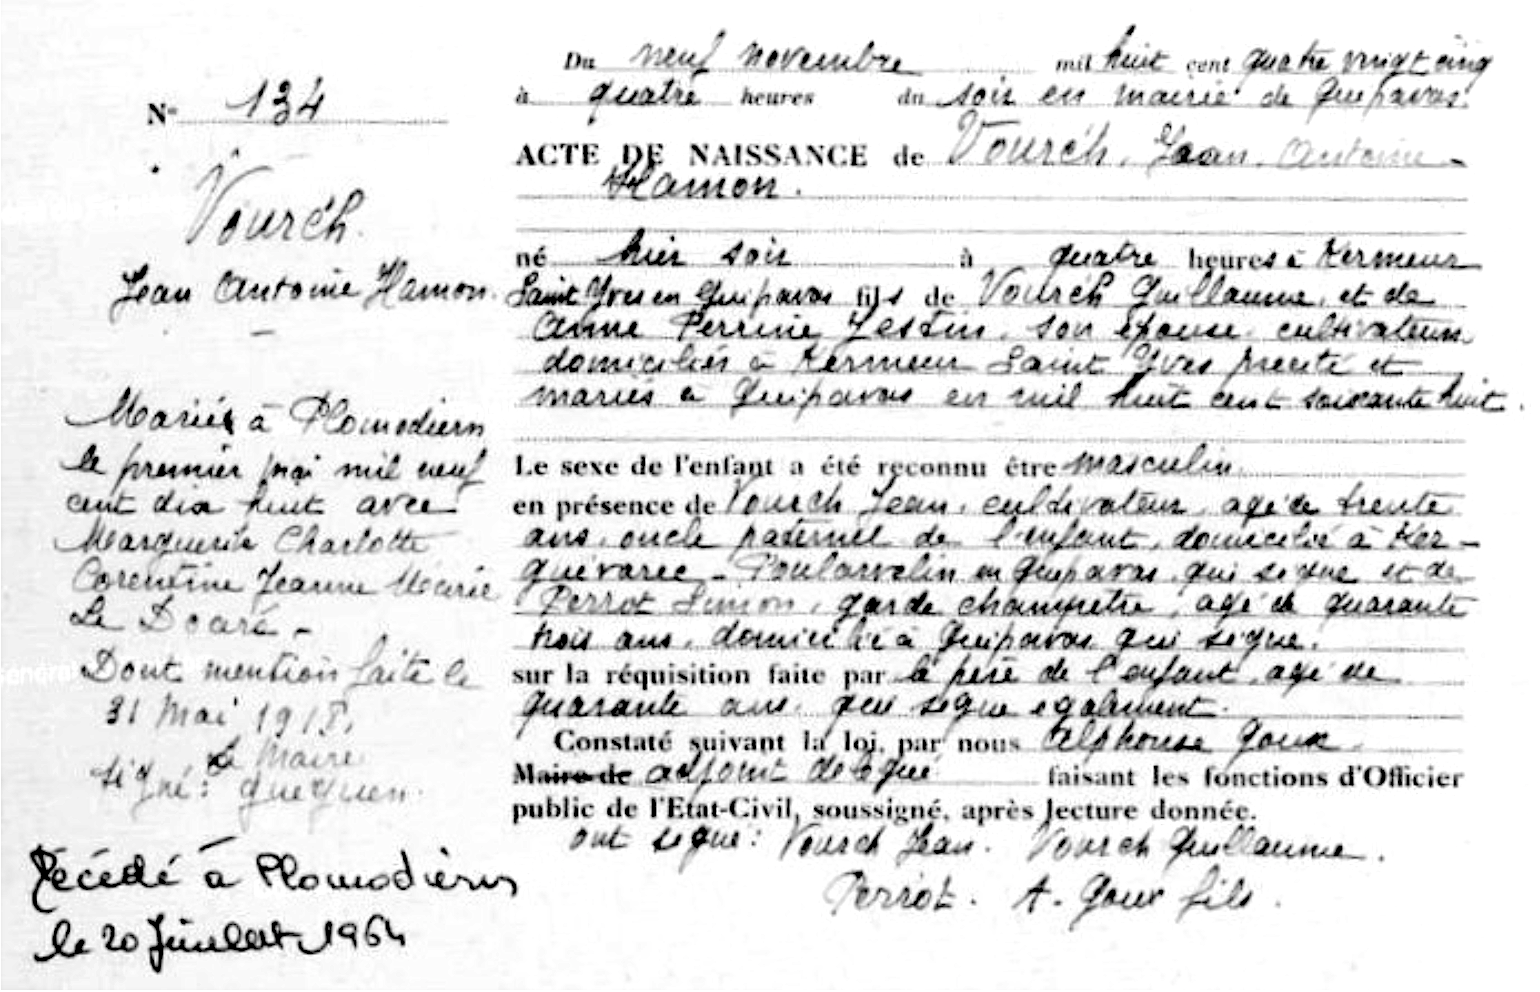 N° 134
Vourc'h
Jean Antoine Hamon.
Marié à Plomodiern
le premier mai mil neuf
cent dix huit avec
Marguerite Charlotte
Corentine Jeanne Marie
Le Doaré -
Dont mention faite le
31 Mai 1918,
Le Maire
signé : Gueguen.
Décédé à Plomodiern
le 20 Juillet 1964
Du neuf novembre mil huit cent quatre vingt cinq
à quatre heures du soir en mairie de Guipavas.
ACTE DE NAISSANCE de Vourc'h, Jean, Antoine -
Hamon.
né hier soir à quatre heures à Kermeur
Saint Yves en Guipavas fils de Vourc'h Guillaume, et de
Anne Perrine Jestin, son épouse, cultivateurs,
domiciliés à Kermeur Saint Yves précité et
mariés à Guipavas en mil huit cent soixante huit.
Le sexe de l'enfant a été reconnu être masculin
en présence de Vourch Jean, cultivateur, agé de trente
ans, oncle paternel de l'enfant, domicilié à Ker-
guévarec - en Guipavas, qui signe et de
Perrot Simon, garde champetre, agé de quarante
trois ans, domicilié à Guipavas qui signe.
sur la réquisition faite par le père de l'enfant, agé de
quarante ans, qui signe egalement.
Constaté suivant la loi, par nous Alphonse Goux,
Maire de adjoint délégué faisant les fonctions d'Officier
public de l'Etat-Civil, soussigné, après lecture donnée.
ont signé : Vourch Jean. Vourch Guillaume.
Perrot. A. Goux fils.